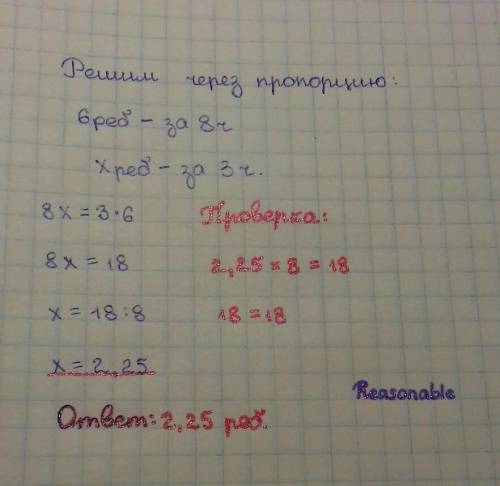 Решим через пропорцию:
6реб - за 8ч
xреб - за 3ч.
8x = 3·6
8x = 18
x = 18:8
x = 2,25
Проверка:
2,25 × 8 = 18
18 = 18
Ответ: 2,25 реб.
Reasonable